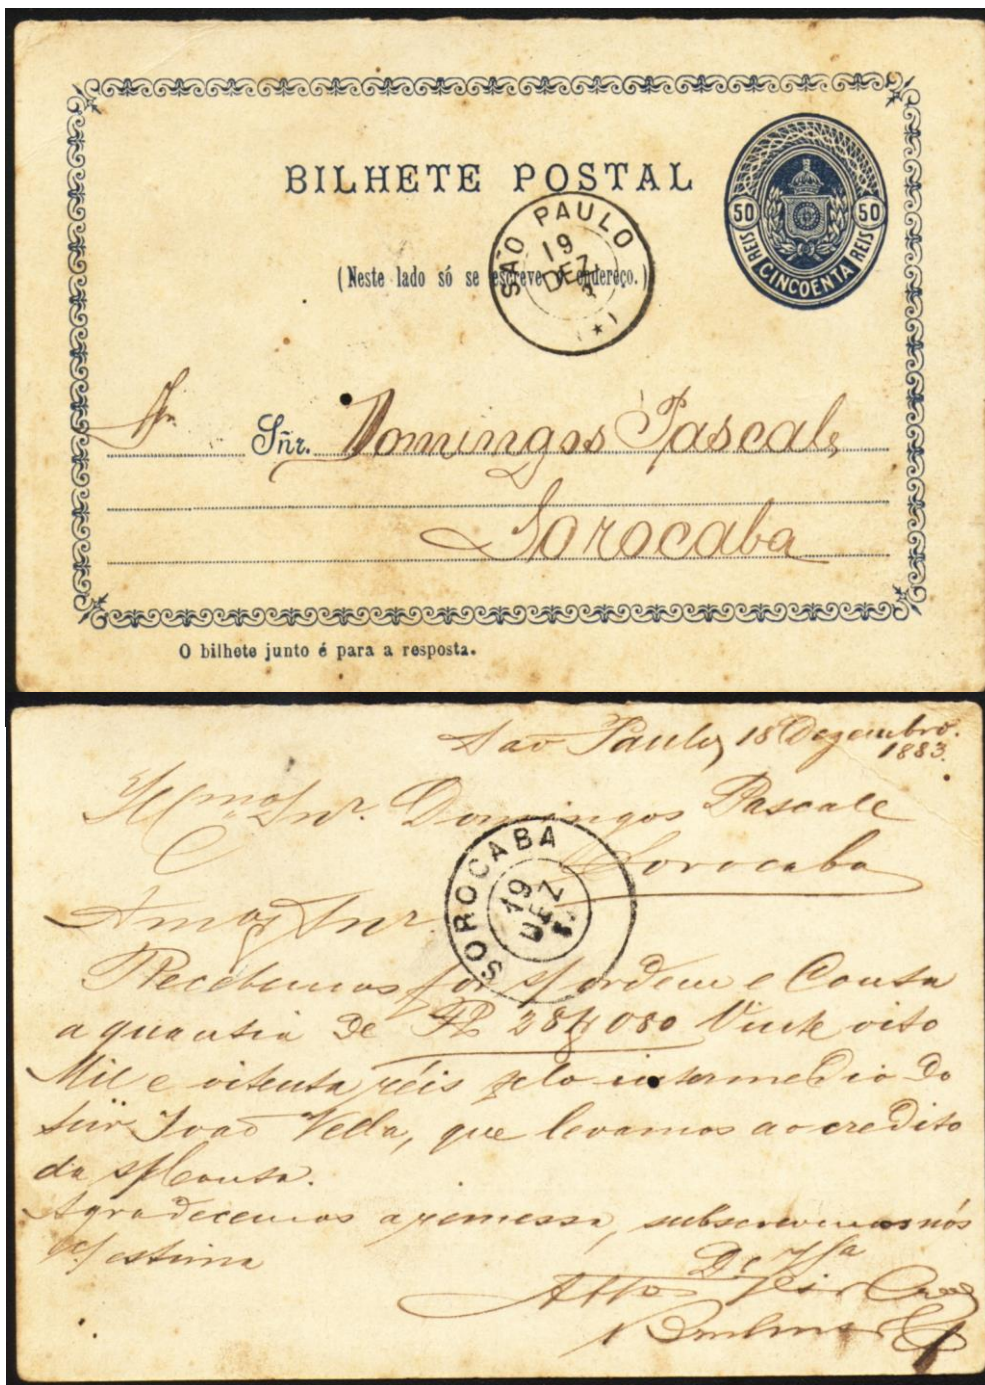 BILHETE POSTAL
50 50
REIS CINCOENTA REIS
SÃO PAULO
19
DEZ
3
(Neste lado só se escreve o endereço.)
Sñr. Domingos Pascale
Sorocaba
O bilhete junto é para a resposta.
Sao Paulo, 18 Dezembro.
1883.
Illmo Snr. Domingos Pascale
Sorocaba
SOROCABA
19
DEZ
Amo Snr.
Recebemos por s/ ordem e Conta
a quantia de 28$080 Vinte oito
Mil e oitenta réis pelo intermedio do
Snr João Vella, que levamos ao credito
da s/ Conta.
Agradecemos a remessa, subscrevemos nós
estima
De VSa